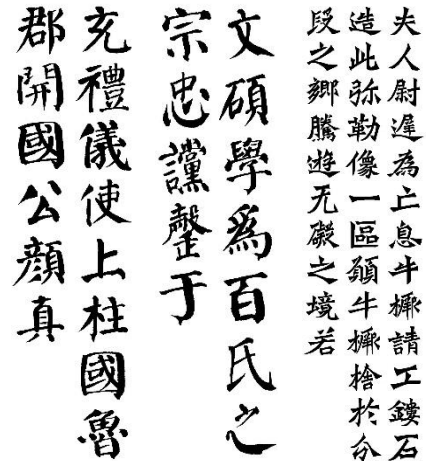 夫人尉遲為亡息牛橛請工鏤石
造此弥勒像一區願牛橛捨於分
段之鄉騰遊无礙之境若
文碩學爲百氏之
宗忠讜罄于
充禮儀使上柱國魯
郡開國公顏真